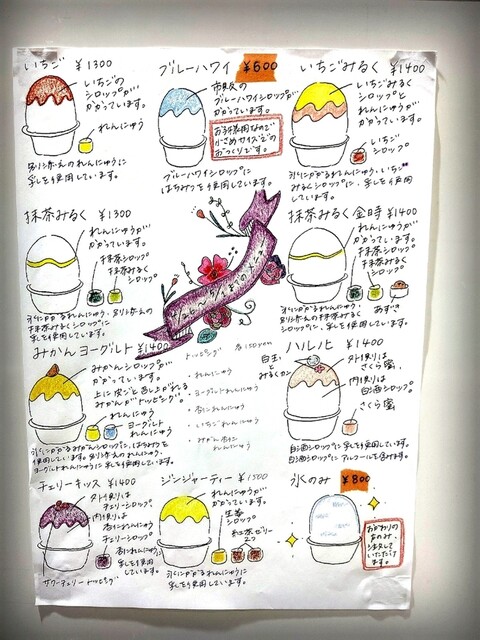 いちご ¥1300
いちごの
シロップが
かかっています。
れんにゅう
別り添えのれんにゅうに
乳を使用しています。
ブルーハワイ ¥600
市販の
ブルーハワイシロップが
かかっています。
お子様用なので
小さめサイズでの
おつくりです。
ブルーハワイシロップに
はちみつを使用しています。
いちごみるく ¥1400
いちごみるく
シロップと
れんにゅうが
かかっています。
いちご
シロップ
氷にかかるれんにゅう、いちご
みるくシロップに、乳を使用
しています。
抹茶みるく ¥1300
れんにゅうが
かかっています。
抹茶シロップ
抹茶みるく
シロップ
氷にかかるれんにゅう、別り添えの
抹茶みるくシロップに
乳を使用しています。
抹茶みるく金時 ¥1400
れんにゅうが
かかっています。
抹茶シロップ
抹茶みるく
シロップ
あずき
氷にかかるれんにゅう、抹茶みるく
シロップに、乳を使用しています。
みかんヨーグルト ¥1400
みかんシロップが
かかっています。
上に皮ごと召し上がれる
みかんがトッピング。
れんにゅう
ヨーグルト
れんにゅう
氷にかかるみかんシロップに、はちみつを
使用しています。別り添えのれんにゅう、
ヨーグルトれんにゅうに乳を使用しています。
トッピング 各150yen
・れんにゅう
・ヨーグルトれんにゅう
・杏仁れんにゅう
・いちごれんにゅう
・みかん杏仁
れんにゅう
ハルノヒ ¥1400
白玉と
みるくかん
外周りは
さくら蜜、
内周りは
白酒シロップ。
さくら蜜
白酒シロップに乳を使用しています。
白酒シロップにアルコールを含みます。
チェリーキッス ¥1400
外周りは
チェリーシロップ
内周りは
杏仁れんにゅう
チェリーシロップ
杏仁れんにゅうに、
乳を使用
しています。
サワーチェリートッピング
ジンジャーティー ¥1500
れんにゅうが
かかっています。
生姜
シロップ
紅茶ゼリー
2つ
氷にかかるれんにゅうに
乳を使用しています。
氷のみ ¥800
おかわりの
方のみ、
注文して
いただけ
ます。